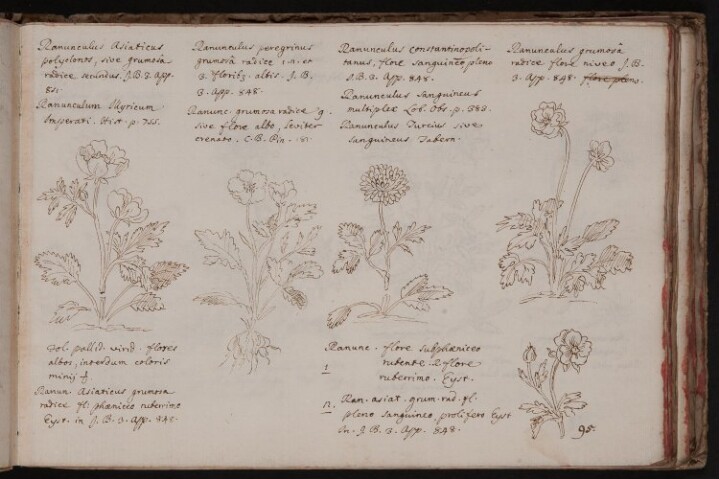 Ranunculus Asiaticus
polyclonos, sive grumosa
radice secundus. J.B. 3. App.
851.
Ranunculum Illyricum
Imperati. Hist. p. 755.
Ranunculus peregrinus
grumosâ radice 1. a. et
3. altis. J. B.
3. App. 848.
Ranunc. grumosa radice g.
sive flore albo, leviter
crenato. C.B. Pin. 181.
Ranunculus constantinopoli-
tanus, flore sanguineo pleno
J.B. 3. App. 848.
Ranunculus sanguineus
multiplex Lob. Obs. p. 383.
Ranunculus Turcius sive
sanguineus Tabern.
Ranunculus grumosâ
radice flore niveo J. B.
3. App. 848. flore pleno.
fol. pallid. virid. flores
albos, interdum coloris
minij
Ranun. Asiaticus grumosa
radice fl. phœniceo ruberrimo
Eyst. in J. B. 3. App. 848.
Ranunc. flore subphœniceo
1 rubente. 2 flore
ruberrimo. Eyst.
Ran. asiat. grum. rad. fl.
pleno sanguineo prolifero Eyst
in. J B. 3. App. 848.
95.